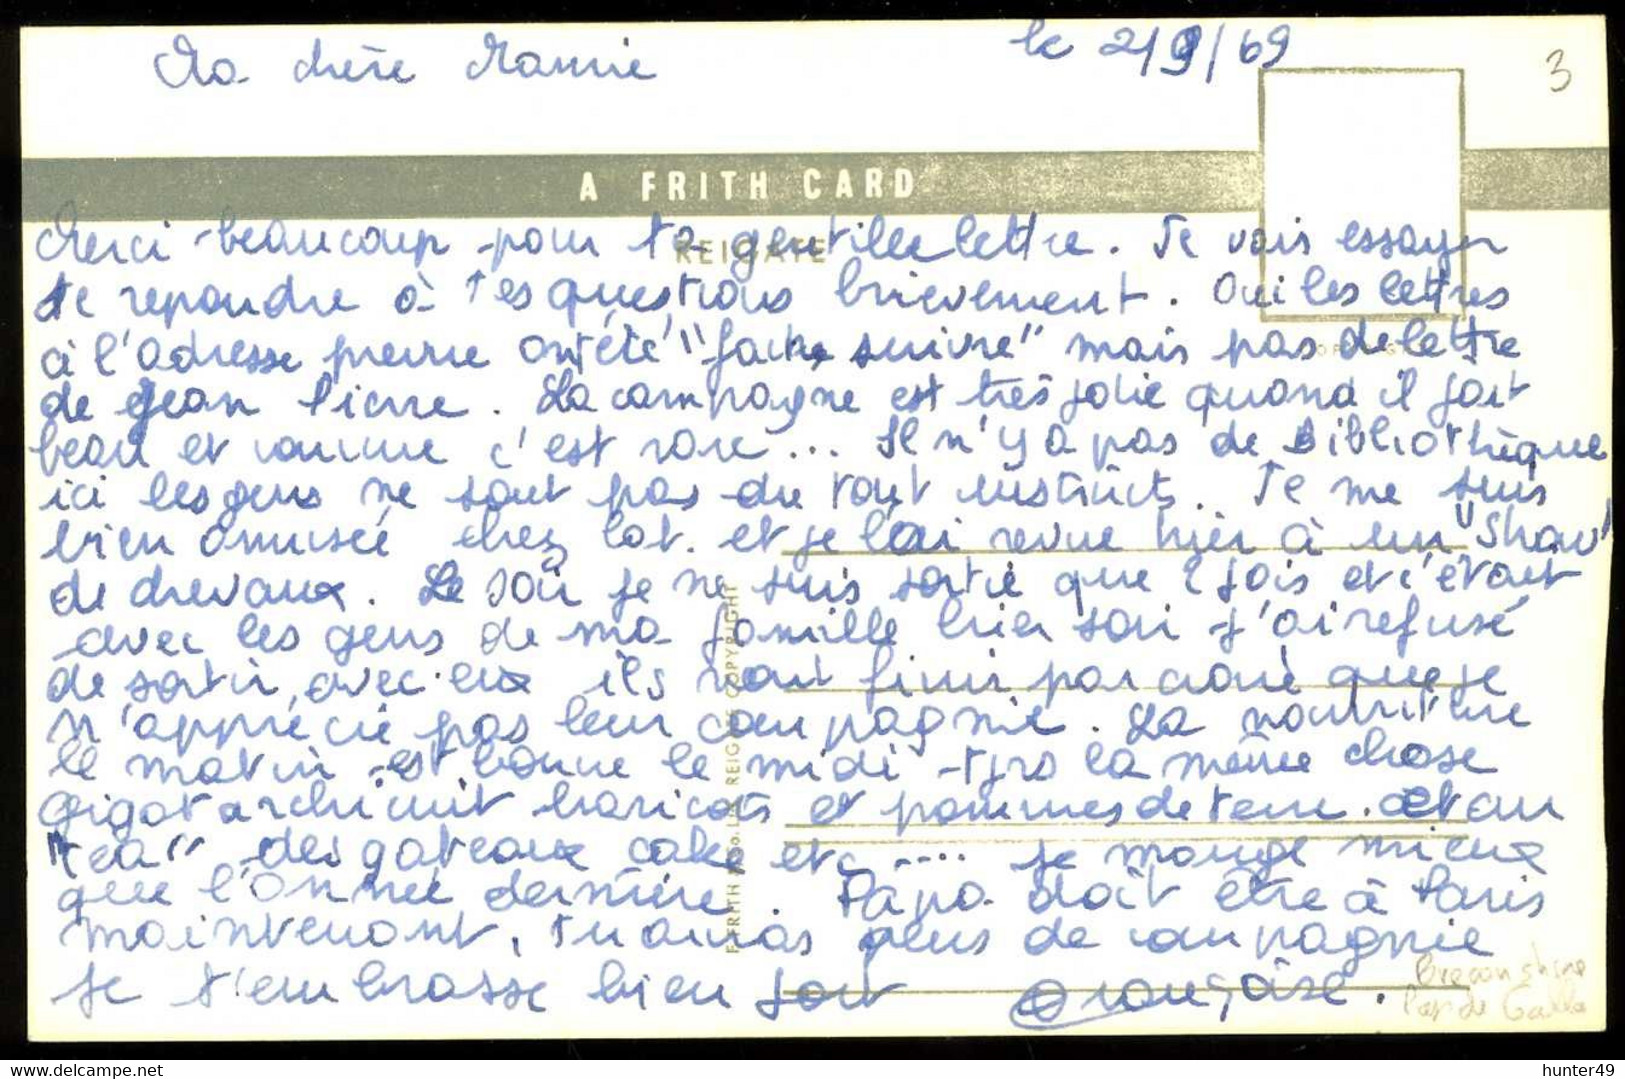 Ma chère Mamie
le 2/9/69
3
A FRITH CARD
REIGATE
Merci beaucoup pour ta gentille lettre. Je vais essayer
de repondre à tes questions brievement. Oui les lettres
à l'adresse pierre ont été "faire suivre" mais pas de lettre
de Jean Pierre. La campagne est très jolie quand il fait
beau et comme c'est rare... Il n'y a pas de Bibliothèque
ici les gens ne sont pas du tout instruits. Je me suis
bien amusée chez Cat. et je l'ai revue hier à un "Show"
de chevaux. Le soir je ne suis sortie que 2 fois et c'était
avec les gens de ma famille hier soir j'ai refusé
de sortir avec eux ils vont finir par croire que je
n'apprécie pas leur compagnie. La nourriture
le matin est bonne le midi tjrs la même chose
gigot archicuit haricots et pommes de terre. et au
"tea" des gateaux cake etc .... je mange mieux
que l'année dernière. Papa doit être à Paris
maintenant, tu auras plus de compagnie
je t'embrasse bien fort Françoise.
Breconshire
Pays de Galles
hunter49